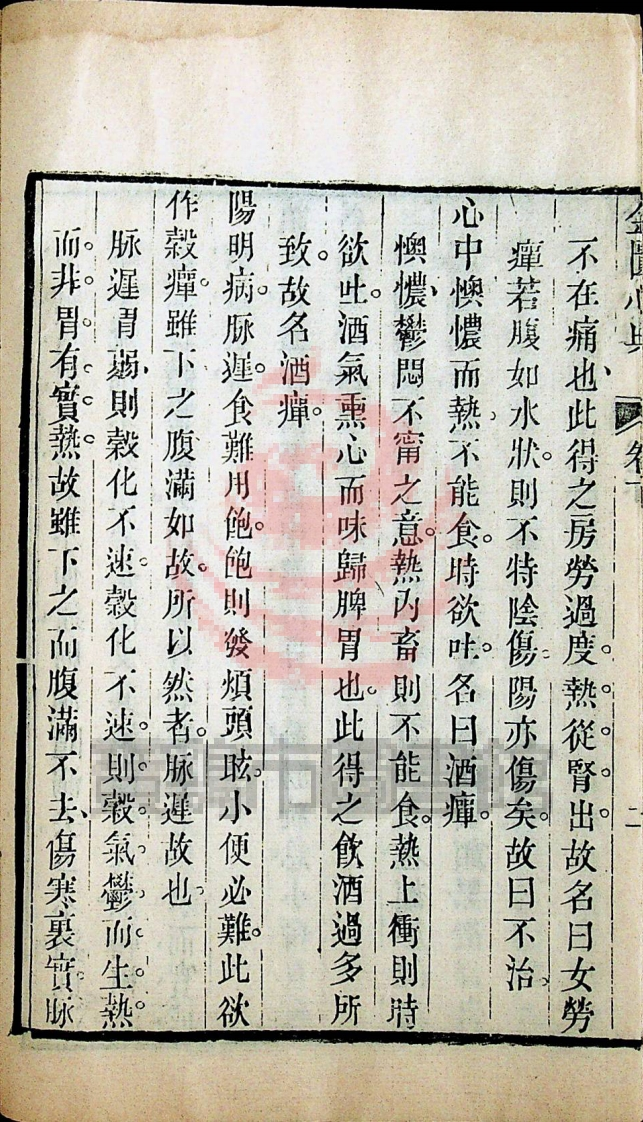 金匱心典 卷下 二
不在痛也此得之房勞過度。熱從腎出。故名曰女勞
癉若腹如水狀。則不特陰傷。陽亦傷矣。故曰不治。
心中懊憹而熱不能食。時欲吐。名曰酒癉。
懊憹、鬱悶不甯之意。熱內畜則不能食。熱上衝則時
欲吐。酒氣熏心而味歸脾胃也。此得之飲酒過多所
致。故名酒癉。
陽明病。脉遲。食難用飽。飽則發煩頭眩。小便必難。此欲
作穀癉。雖下之腹滿如故。所以然者。脉遲故也。
脉遲胃弱、則穀化不速。穀化不速。則穀氣鬱而生熱。
而。非。胃。有。實。熱。故雖下之而腹滿不去、傷寒裏實。脉